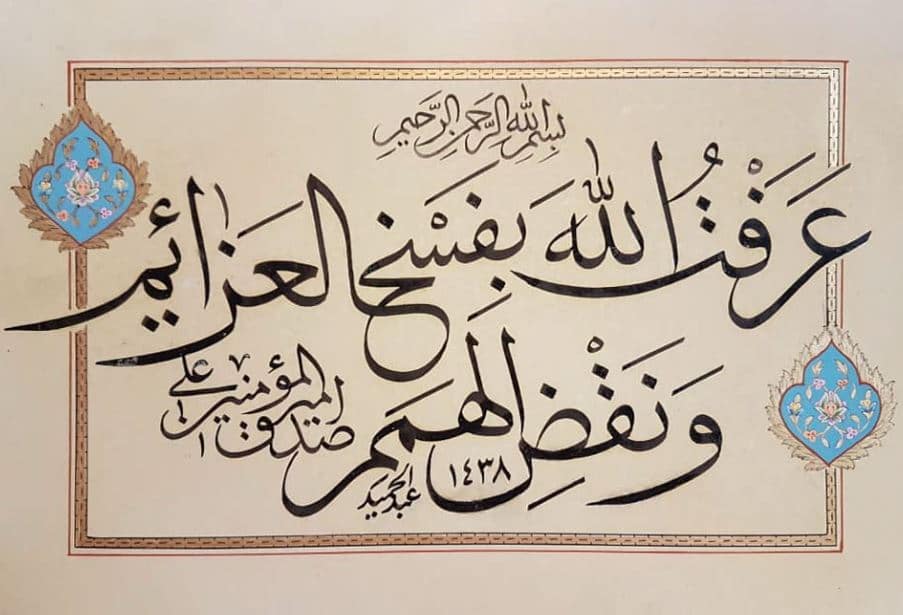 بِسْمِ اللهِ الرَّحْمنِ الرَّحيمِ
عَرَفْتُ اللهَ بِفَسْخِ العَزائِمِ
وَنَقْضِ الهِمَمِ
صدق أمير المؤمنين علي
١٤٣٨
عبدالحميد